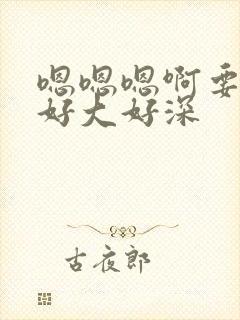 嗯嗯嗯啊要
好大好深
古夜郎